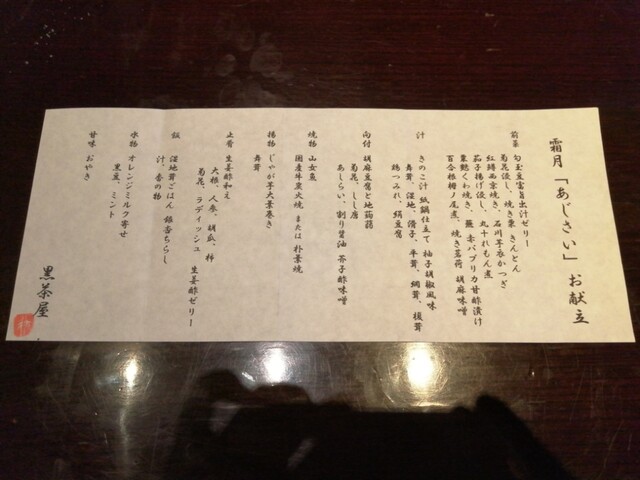 霜月「あじさい」お献立
前菜 勾玉豆富旨出汁ゼリー
菊花浸し、焼き栗 きんとん
紅鱒西京焼き、石川芋衣かつぎ
茄子揚げ浸し、丸十れもん煮
粟麩くわ焼き、蕪 赤パプリカ甘酢漬け
百合根柳ノ尾煮、焼き茗荷 胡麻味噌
汁 きのこ汁 紙鍋仕立て 柚子胡椒風味
舞茸、湿地、滑子、平茸、網茸、榎茸
鶏つみれ、絹豆腐
向付 胡麻豆腐と地蒟蒻
菊花、しし唐
あしらい、割り醤油 芥子酢味噌
焼物 山女魚
国産牛炭火焼 または 朴葉焼
揚物 じゃが芋大葉巻き
舞茸
止肴 生姜酢和え
大根、人参、胡瓜、柿
菊花、ラディッシュ 生姜酢ゼリー
飯 湿地茸ごはん 銀杏ちらし
汁、香の物
水物 オレンジミルク寄せ
黒豆、ミント
甘味 おやき
黒茶屋